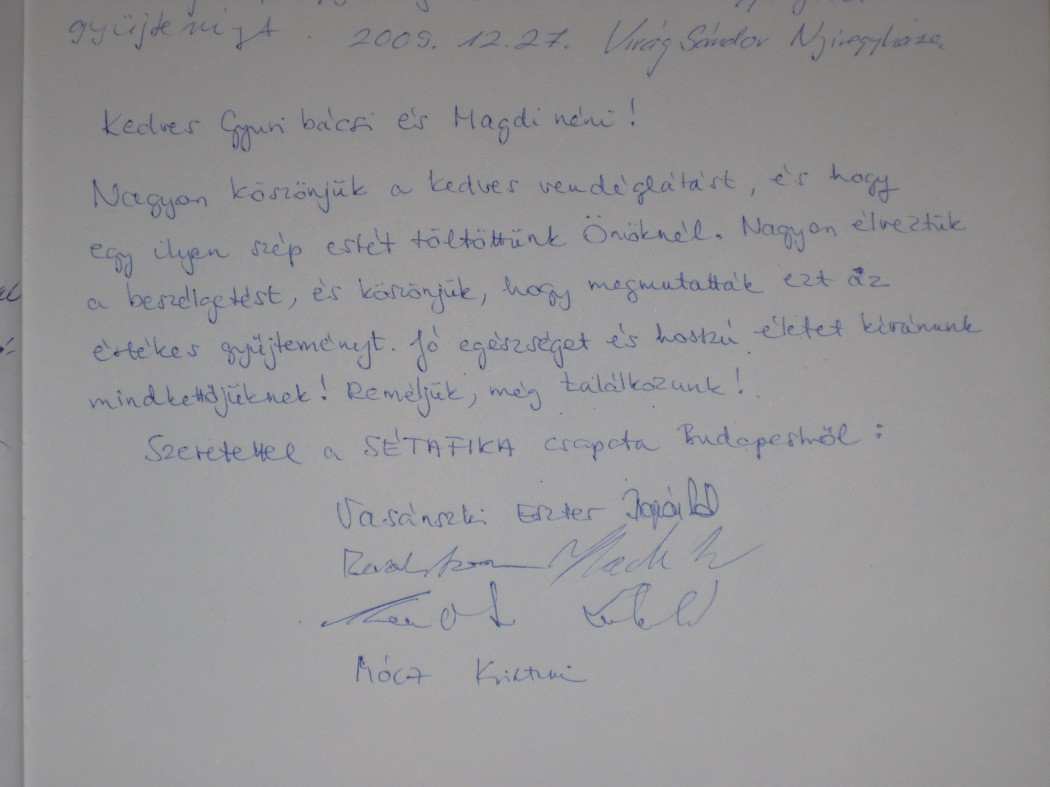 gyűjteményt. 2009. 12.27. Virág Sándor Nyíregyháza
Kedves Gyuri bácsi és Magdi néni!
Nagyon köszönjük a kedves vendéglátást, és hogy
egy ilyen szép estét töltöttünk Önöknél. Nagyon élveztük
a beszélgetést, és köszönjük, hogy megmutatták ezt az
értékes gyűjteményt. Jó egészséget és hosszú életet kívánunk
mindkettőjüknek! Reméljük, még találkozunk!
Szeretettel a SÉTAFIKA csapata Budapestről:
Vasánszki Eszter
Mócz